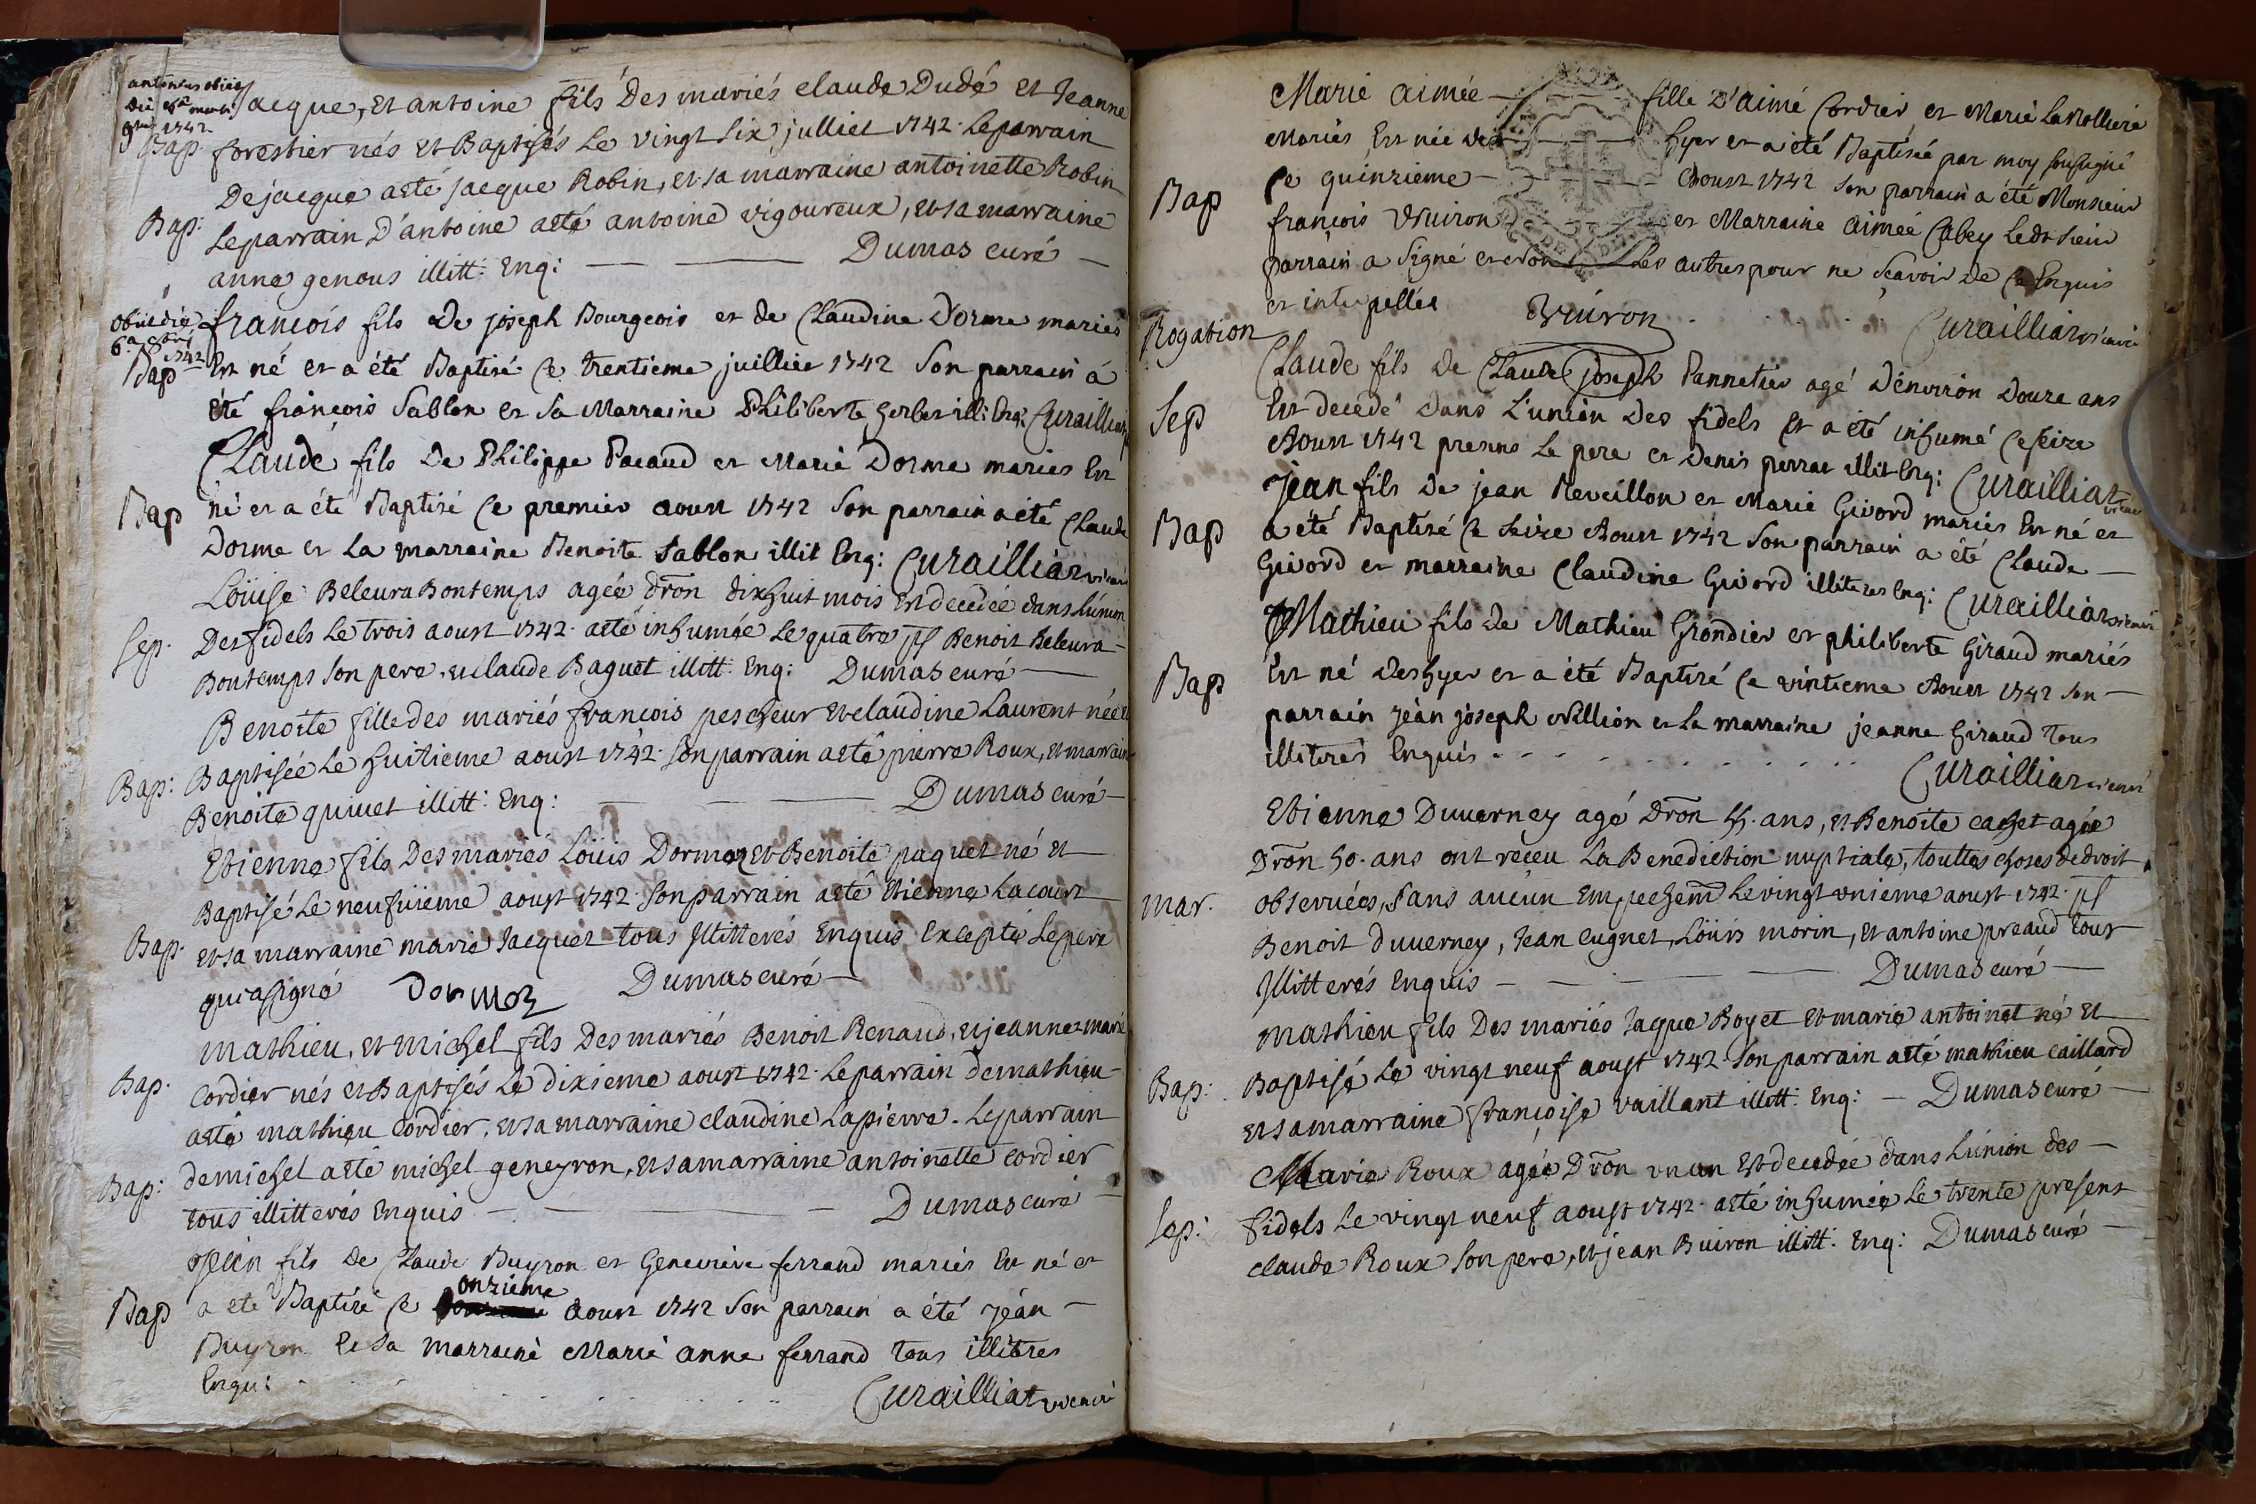 antonius obiit
die 6a
9bris 1742
Jacque, et antoine fils Des mariés claude Dudé et Jeanne
Bap. forestier nés et Baptisés Le vingt six julliet 1742. Le parrain
De jacque aeté jacque Robin, et sa marraine antoinette Robin
Bap: Le parrain D'antoine aeté antoine vigoureux, et sa marraine
anne genous illitt: Enq: Dumas curé
obiit die
6a
1742
françois fils De joseph Bourgeois et de Claudine Dorme mariés
Bap Est né et a été Baptisé Ce trentieme juillier 1742 Son parrain a
été françois Sablon et Sa Marraine Philiberte Gerbet illi: Enq: Curailliat
Claude fils De Philippe Pacaud et Marie Dorme mariés Est
Bap né et a été Baptisé Ce premier aoust 1742 Son parrain a été Claude
Dorme et La marraine Benoite Sablon illit Enq: Curailliat vicaire
Loüise Beleura Bontemps agée dron dixhuit mois Est decedée dans L'union
Sep. Des fidels Le trois aoust 1742. aeté inhumée Le quatre pst Benoit Beleura
Bontemps son pere, et claude Baguet illitt: Enq: Dumas curé
Benoite fille des mariés françois pescheur et claudine Laurent née et
Bap: Baptisée Le huitieme aoust 1742. son parrain aeté pierre Roux, et marraine
Benoite quivet illitt: Enq: Dumas curé
Etienne fils Des mariés Loüis Dormoz et Benoite paquet né et
Baptisé Le neufuieme aoust 1742. son parrain aeté Etienne Lacourt
Bap. et sa marraine marie Jacquet tous Illitterés Enquis Excepté Le pere
qui a signé Dormoz Dumas curé
mathieu, et michel fils Des mariés Benoit Renaud, et jeanne marie
Bap. Cordier nés et Baptisés Le dixieme aoust 1742. Le parrain de mathieu
aeté mathieu Cordier, et sa marraine claudine Lapierre. Le parrain
Bap: de michel aeté michel geneyron, et sa marraine antoinette cordier
tous illitterés Enquis Dumas curé
Jean fils De Claude Buyron et Genevieve ferrand mariés Est né et
onzieme
Bap a eté Baptisé Ce aoust 1742 Son parrain a été Jean
Buyron Et Sa marraine Marie anne ferrand Tous illitres
Enqu: Curailliat vicaire
Marie aimée fille D'aimé Cordier et Marie La Rolliere
Mariés Est née des hyer et a été Baptisée par moy soussigné
Bap Ce quinzieme Aoust 1742 Son parrain a été Monsieur
françois Vuiron et Marraine aimée Cabey Ledt sieur
parrain a Signé et non Les autres pour ne Scavoir De Ce Enquis
et intepellés Vuiron Curailliat vicaire
Rogation
Claude fils De Claude joseph Pannetier agé D'environ Douze ans
Sep Est decedé Dans L'union Des fidels Et a été inhumé Ce seize
Aoust 1742 presens Le pere et Denis perrat illit Enq: Curailliat vicaire
Jean fils De jean Reveillon et Marie Givord mariés Est né et
Bap a été Baptisé Ce Seize Aoust 1742 Son parrain a été Claude
Givord et marraine Claudine Givord illiteres Enq: Curailliat vicaire
Mathieu fils De Mathieu Grondier et philiberte Giraud mariés
Bap Est né Des hyer et a été Baptisé Ce vintieme Aoust 1742 Son
parrain jean joseph Villion et La marraine jeanne Giraud Tous
illiterés Enquis Curailliat vicaire
Etienne Duverney agé Dron 45. ans, et Benoite cachet agée
Dron 50. ans ont reçeu La Benediction nuptiale, touttes choses de droit
mar. observées, sans aucun Empechemt Le vingt unieme aoust 1742. pst
Benoit duverney, Jean cugnet, Loüis morin, et antoine preaud tous
Illitterés Enquis Dumas curé
mathieu fils Des mariés Jaque Boyet et marie antoinet né et
Bap: Baptisé Le vingt neuf aoust 1742. son parrain aeté mathieu caillard
et sa marraine françoise vaillant illitt: Enq: Dumas curé
Marie Roux agée Dron un an Est decedée dans L'union des
Sep: fidels Le vingt neuf aoust 1742. aeté inhumée Le trente present
claude Roux son pere, et jean Buiron illitt: Enq: Dumas curé